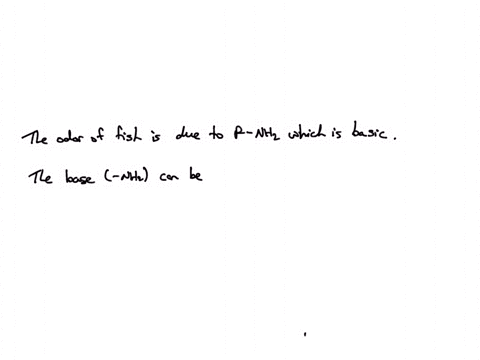 The odor of fish is due to R-NH₂ which is basic.
The base (-NH₂) can be